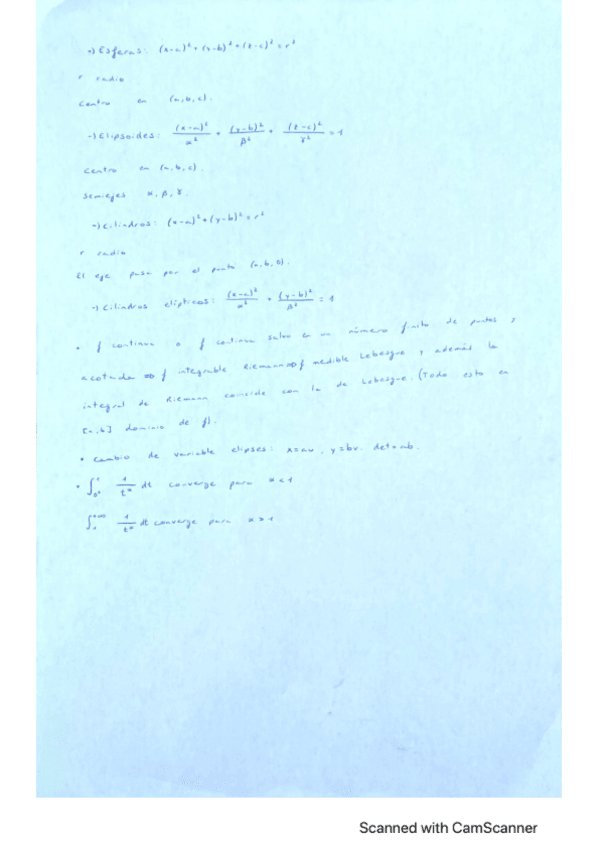 →) Esferas: (x-a)² + (y-b)² + (z-c)² = r²
r radio
centro en (a,b,c).
→) Elipsoides: (x-a)²/α² + (y-b)²/β² + (z-c)²/γ² = 1
centro en (a,b,c).
semiejes α, β, γ.
→) Cilindros: (x-a)² + (y-b)² = r²
r radio
El eje pasa por el punto (a,b,0).
→) Cilindros elípticos: (x-a)²/α² + (y-b)²/β² = 1
• f continua o f continua salvo en un número finito de puntos y
acotada ⇒ f integrable Riemann ⇒ f medible Lebesgue y además la
integral de Riemann coincide con la de Lebesgue. (Todo esto en
[a,b] dominio de f).
• Cambio de variable elipses: x=au, y=bv. det=ab.
• ∫₀₊¹ 1/t^α dt converge para α<1
∫₁^{+∞} 1/t^α dt converge para α>1
Scanned with CamScanner